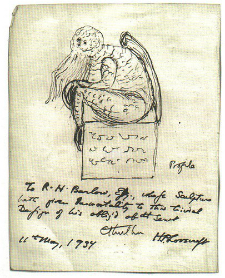 Profile
To R. H. Barlow, Esq., whose Sculpture
hath given Immortality to this trivial
Design of his oblig'd obt Servt
Cthulhu H. P. Lovecraft
11th May, 1934